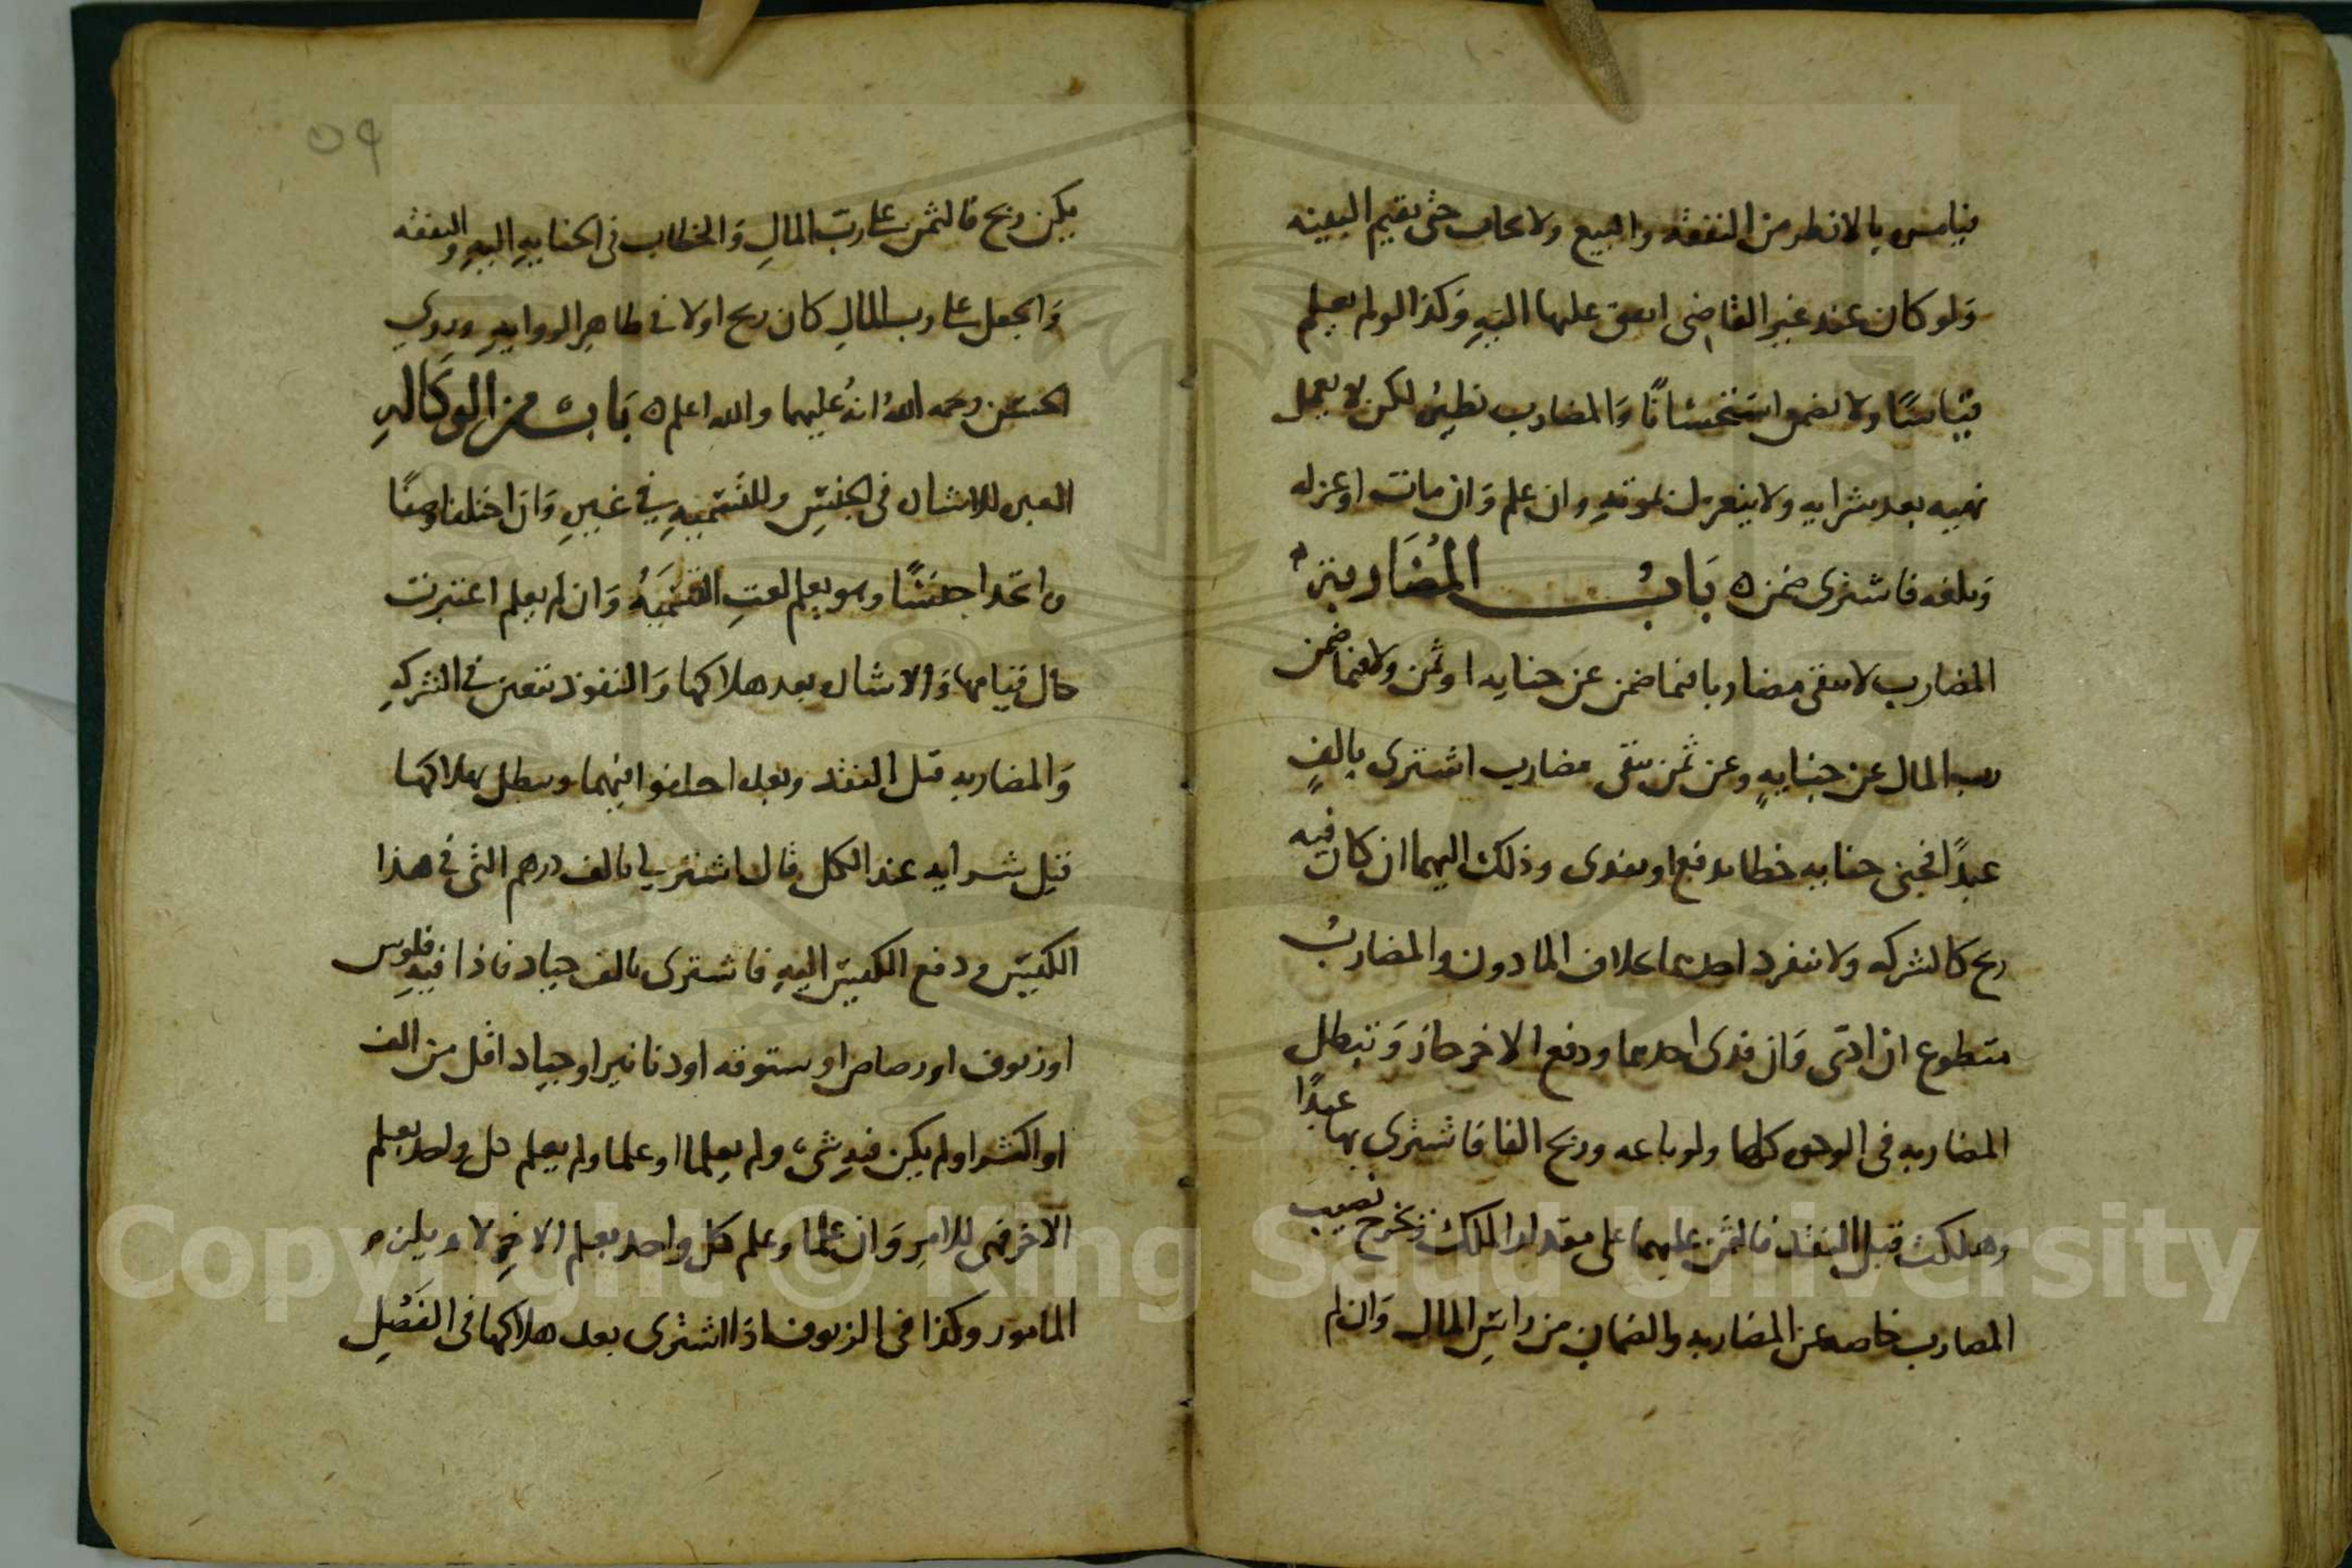 فيامر بالانظر من النفقه والبيع ولا يجاب حتى يقيم البينه
وَلو كان عند غير القاضى انفق عليها البته وَكذا لو لم يعلم
قياسًا ولا يضمن استحسانًا وَالمضارب نظيره لكن لا يعمل
نهيه بعد شرايه ولا ينعزل بموته وان علم وَان مات او عزله
وبلغه فاشترى ضمن ه بَابُ المُضَاربة
المضارب لا يبقى مضاربا فيما ضمن عن جنايه او ثمن ولا فيما ضمن
رب المال عن جنايهٍ وعن ثمن يبقى مضارب اشترى بالفٍ
عبدًا فجنى جنايه خطا يدفع او يفدى وذلك اليهما ان كان فيه
ربح كالشركه ولا ينفرد احدهما بخلاف الماذون والمضاربُ
متطوع ان ادى وَان فدى احدهما ودفع الاخر جاز وَتبطل
المضاربه فى الوجوه كلها ولو باعه وربح الفا فاشترى بها عبدًا
وهلكت قبل النقد فالثمن عليهما على مقدار الملك وتخرج نصيب
المضارب خاصه عن المضاربه والضمان من راس المال وَان لم
٥٩
يكن ربح فالثمن على ربّ المالِ وَالخطاب فى الجنايه اليهِ والنفقه
وَالجعل على رب المالِ كان ربح اولا فى ظاهر الروايه وروي
الحسن رحمه اللهُ انهُ عليهما والله اعلم ه بَابٌ من الوكَاله
العبره للاشاره فى الجنس وللتسميهِ في غيرهِ وَان اختلفا وصفًا
واتحدا جنسًا وهو يعلم لغتِ التسميَهُ وَان لم يعلم اعتبرت
حال قيامها وَالاشاره بعد هلاكها وَالنقود تتعين في الشركه
وَالمضاربه قبل النقد وبعده اختلفوا فيهما ويبطل بهلاكها
قبل شرايه عند الكل قال اشتر لي بالف درهم التى فى هذا
الكيس ودفع الكيس اليهِ فاشترى بالف جياد فاذا فيهِ فلوس
او زيوف او رصاص او ستوقه او دنانير او جياد اقل من الف
او اكثر او لم يكن فيهِ شىء ولم يعلما او علما ولم يعلم كل واحد بعلم
الاخر فهى للامرِ وَان علما وعلم كل واحد بعلم الاخرِ لا ويلزم
المامور وكذا فى الزيوف اذا اشترى بعد هلاكها فى الفَصْلِ
Copyright © King Saud University